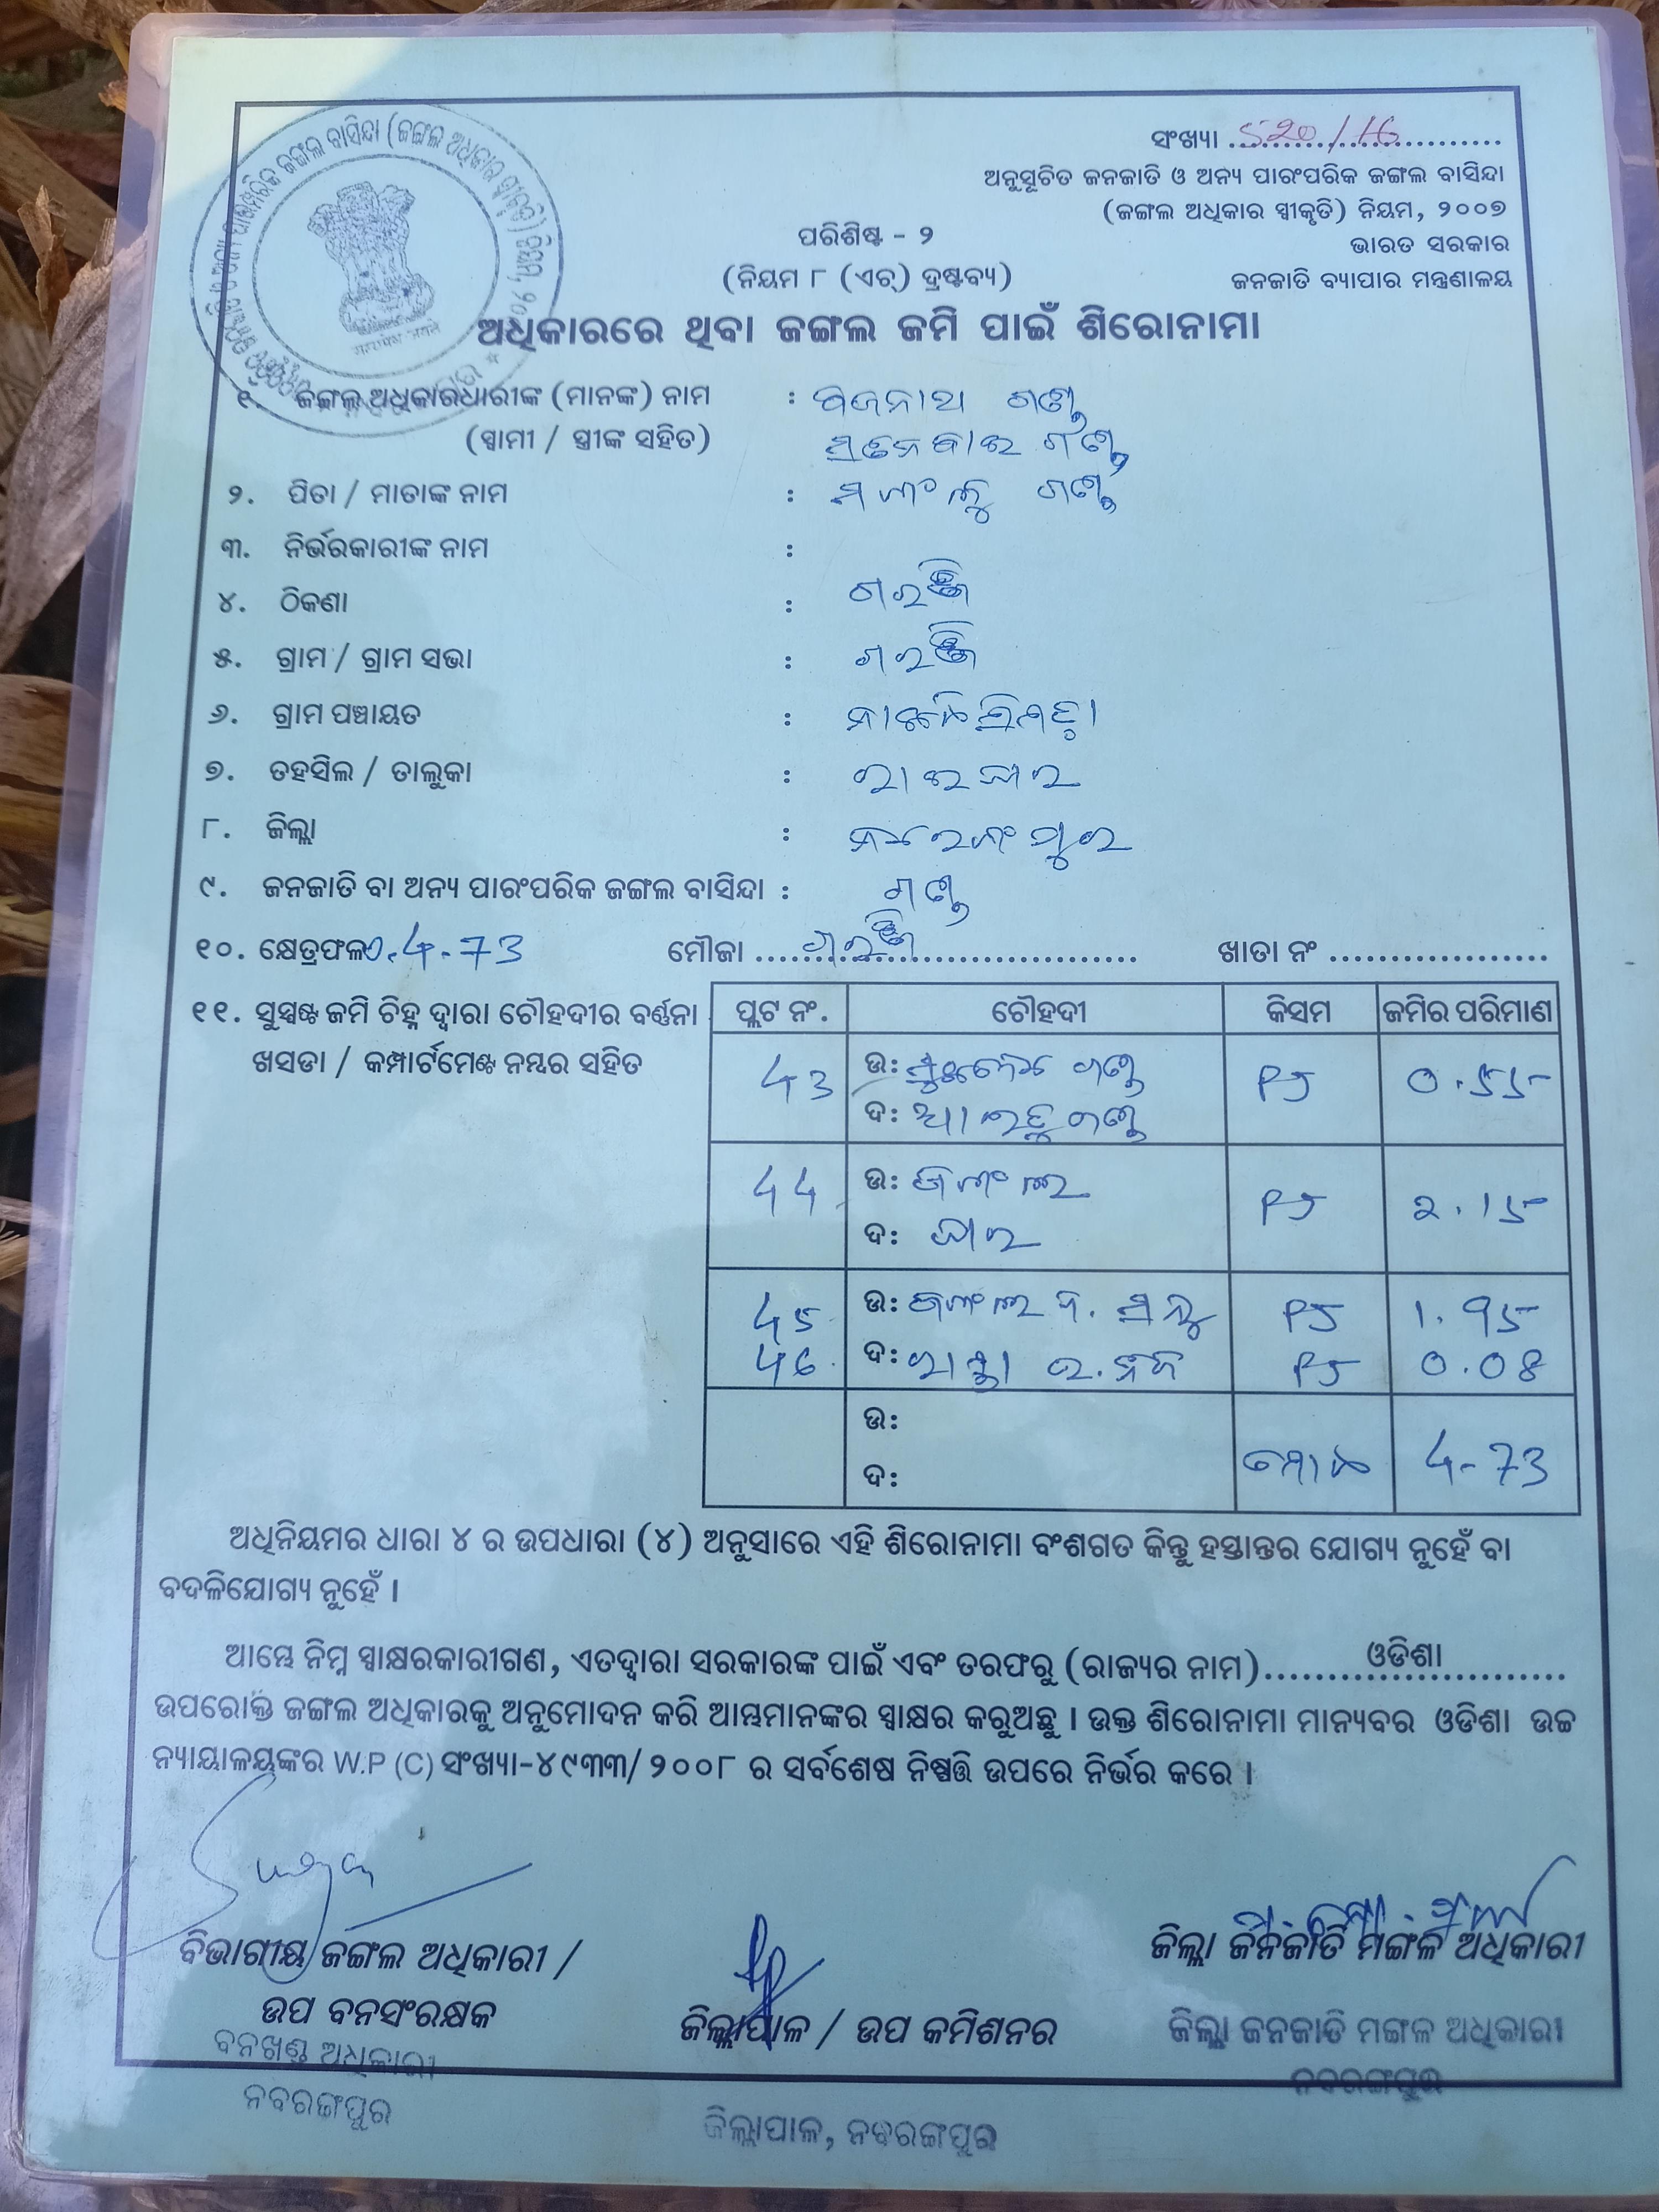 ସଂଖ୍ୟା 520/16
ଅନୁସୂଚିତ ଜନଜାତି ଓ ଅନ୍ୟ ପାରଂପରିକ ଜଙ୍ଗଲ ବାସିନ୍ଦା
(ଜଙ୍ଗଲ ଅଧିକାର ସ୍ୱୀକୃତି) ନିୟମ, ୨୦୦୭
ଭାରତ ସରକାର
ଜନଜାତି ବ୍ୟାପାର ମନ୍ତ୍ରଣାଳୟ
ପରିଶିଷ୍ଟ - ୨
(ନିୟମ ୮ (ଏଚ୍) ଦ୍ରଷ୍ଟବ୍ୟ)
ଅଧିକାରରେ ଥିବା ଜଙ୍ଗଲ ଜମି ପାଇଁ ଶିରୋନାମା
୧. ଜଙ୍ଗଲ ଅଧିକାରଧାରୀଙ୍କ (ମାନଙ୍କ) ନାମ : ଗଣ୍ଡ
(ସ୍ୱାମୀ / ସ୍ତ୍ରୀଙ୍କ ସହିତ) ଗଣ୍ଡ
୨. ପିତା / ମାତାଙ୍କ ନାମ : ଗଣ୍ଡ
୩. ନିର୍ଭରକାରୀଙ୍କ ନାମ :
୪. ଠିକଣା :
୫. ଗ୍ରାମ / ଗ୍ରାମ ସଭା :
୬. ଗ୍ରାମ ପଞ୍ଚାୟତ :
୭. ତହସିଲ / ତାଲୁକା : ରାଇଘର
୮. ଜିଲ୍ଲା : ନବରଙ୍ଗପୁର
୯. ଜନଜାତି ବା ଅନ୍ୟ ପାରଂପରିକ ଜଙ୍ଗଲ ବାସିନ୍ଦା : ଗଣ୍ଡ
୧୦. କ୍ଷେତ୍ରଫଳ ଏ.4-73 ମୌଜା ଖାତା ନଂ
୧୧. ସୁସ୍ପଷ୍ଟ ଜମି ଚିହ୍ନ ଦ୍ୱାରା ଚୌହଦୀର ବର୍ଣ୍ଣନା
ଖସଡା / କମ୍ପାର୍ଟମେଣ୍ଟ ନମ୍ବର ସହିତ
ପ୍ଲଟ ନଂ. ଚୌହଦୀ କିସମ ଜମିର ପରିମାଣ
43 ଉ: ଗଣ୍ଡ PJ 0.55
ଦ: ଗଣ୍ଡ
44 ଉ: ଜଂଗଲ PJ 2.15
ଦ: ଘର
45 ଉ: ଜଂଗଲ PJ 1.95
46 ଦ: ରାସ୍ତା PJ 0.08
ଉ:
ଦ: ମୋଟ 4-73
ଅଧିନିୟମର ଧାରା ୪ ର ଉପଧାରା (୪) ଅନୁସାରେ ଏହି ଶିରୋନାମା ବଂଶଗତ କିନ୍ତୁ ହସ୍ତାନ୍ତର ଯୋଗ୍ୟ ନୁହେଁ ବା
ବଦଳିଯୋଗ୍ୟ ନୁହେଁ ।
ଆମ୍ଭେ ନିମ୍ନ ସ୍ୱାକ୍ଷରକାରୀଗଣ, ଏତଦ୍ୱାରା ସରକାରଙ୍କ ପାଇଁ ଏବଂ ତରଫରୁ (ରାଜ୍ୟର ନାମ) ଓଡିଶା
ଉପରୋକ୍ତ ଜଙ୍ଗଲ ଅଧିକାରକୁ ଅନୁମୋଦନ କରି ଆମ୍ଭମାନଙ୍କର ସ୍ୱାକ୍ଷର କରୁଅଛୁ । ଉକ୍ତ ଶିରୋନାମା ମାନ୍ୟବର ଓଡିଶା ଉଚ୍ଚ
ନ୍ୟାୟାଳୟଙ୍କର W.P (C) ସଂଖ୍ୟା-୪୯୩୩/୨୦୦୮ ର ସର୍ବଶେଷ ନିଷ୍ପତ୍ତି ଉପରେ ନିର୍ଭର କରେ ।
ବିଭାଗୀୟ ଜଙ୍ଗଲ ଅଧିକାରୀ /
ଉପ ବନସଂରକ୍ଷକ
ବନଖଣ୍ଡ ଅଧିକାରୀ
ନବରଙ୍ଗପୁର
ଜିଲ୍ଲାପାଳ / ଉପ କମିଶନର
ଜିଲ୍ଲାପାଳ, ନବରଙ୍ଗପୁର
ଜିଲ୍ଲା ଜନଜାତି ମଙ୍ଗଳ ଅଧିକାରୀ
ଜିଲ୍ଲା ଜନଜାତି ମଙ୍ଗଳ ଅଧିକାରୀ
ନବରଙ୍ଗପୁର